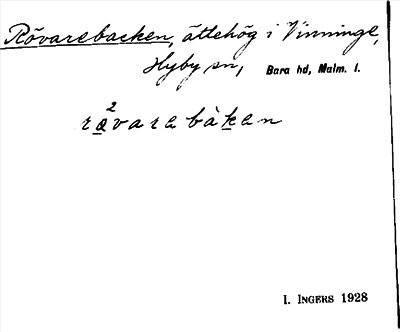 Rövarebacken, ättehög i Vinninge,
Hyby sn, Bara hd, Malm. l.
rø²varebàken
I. INGERS 1928